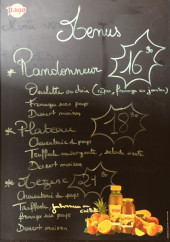 Pago
Menus
* Randonneur 16
Omelette au choix (cèpes, fromage ou jambon)
Fromage du pays
Dessert maison
* Plateau 18
Charcuterie du pays
Truffade auvergnate, salade verte
Dessert maison
* Mézenc 21
Charcuterie du pays
Truffade
Fromage du pays
Dessert maison